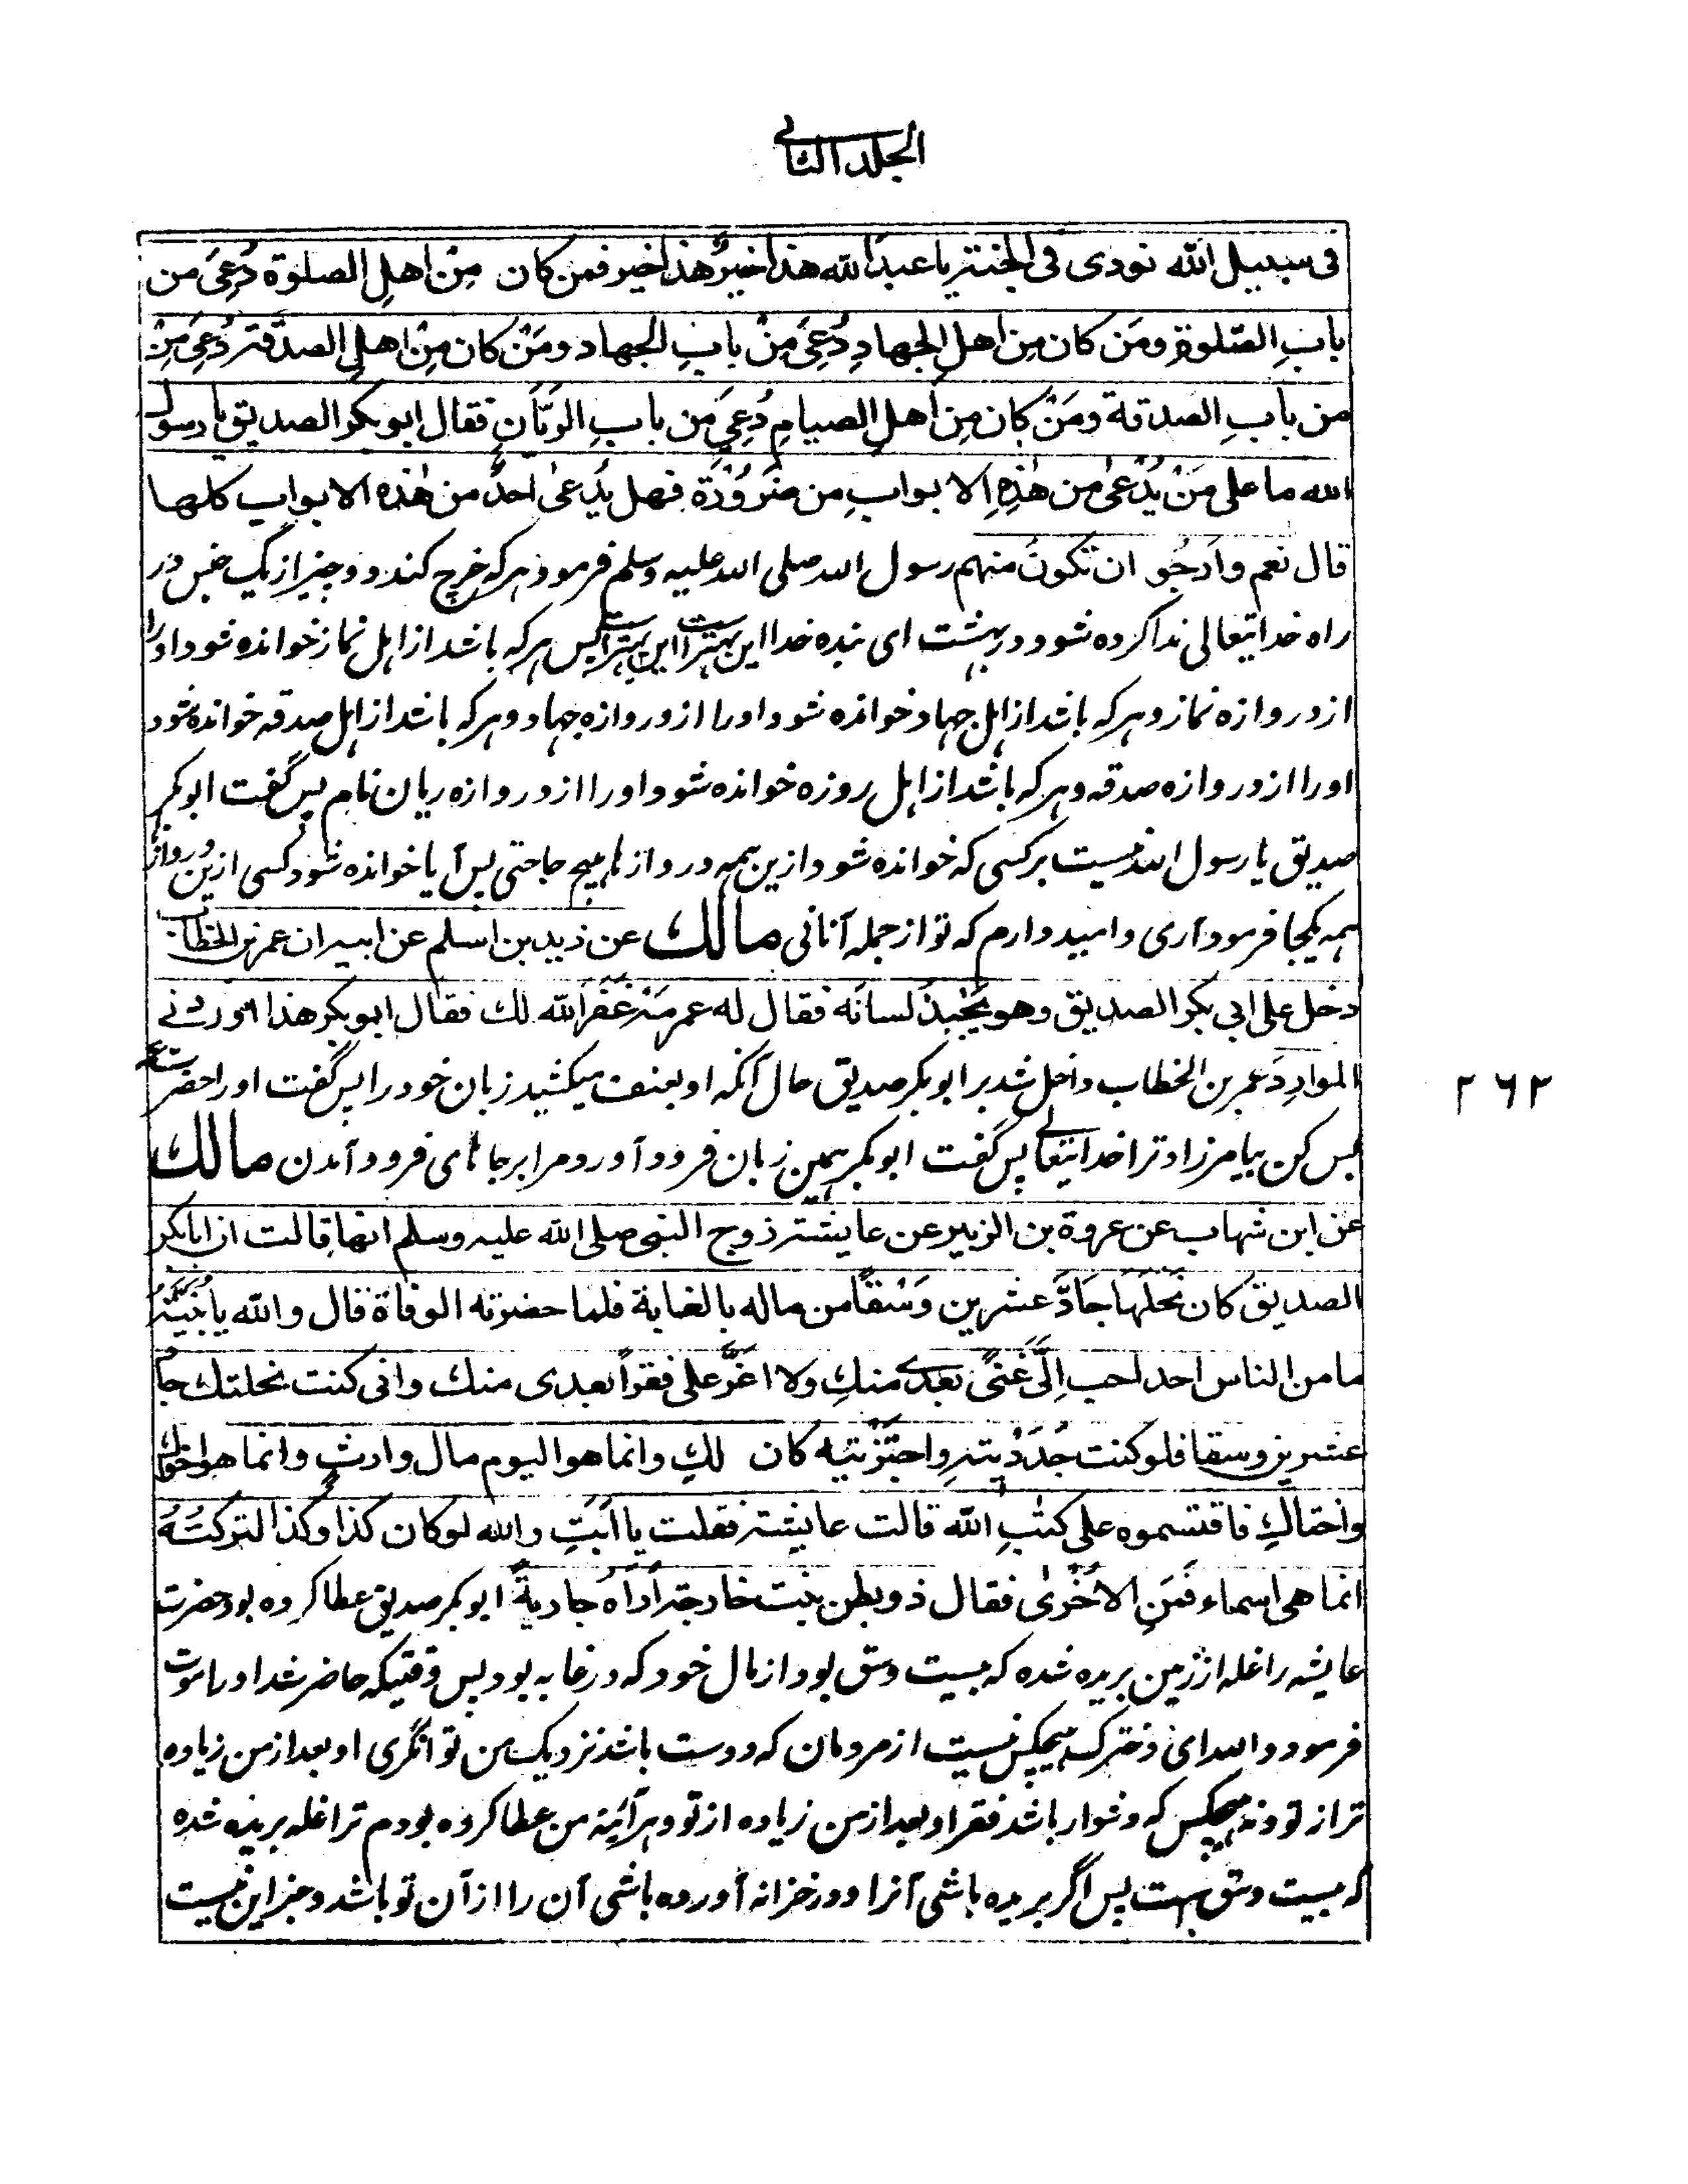 الجلد الثانی
فی سبیل الله نودی فی الجنة یا عبدَ الله هذا خیرٌ هذا خیر فمن کان مِنْ اهلِ الصلوة دُعِیَ من
بابِ الصّلوةِ ومَن کان مِن اهلِ الجهادِ دُعِیَ مِنْ بابِ الجهاد ومَنْ کان مِنْ اهلِ الصدقة دُعِیَ مِنْ
من بابِ الصدقة ومَنْ کان مِن اَهلِ الصیامِ دُعِیَ من بابِ الریّانِ فقال ابو بکر الصدیق یا رسول
الله ما علی مَنْ یُدْعٰی من هٰذِهِ الابوابِ من ضَرُوْرَة فهل یُدعٰی احدٌ من هٰذه الابواب کلها
قال نعم وارجُو ان تکونَ منهم رسول الله صلی الله علیه وسلم فرمود هر که خرچ کند دو چیز از یک جنس در
راه خدایتعالی ندا کرده شود در بهشت ای بنده خدا این بهتر است این بهتر است پس هر که باشد از اهل نماز خوانده شود او را
از دروازه نماز و هر که باشد از اهل جهاد خوانده شود او را از دروازه جهاد و هر که باشد از اهل صدقه خوانده شود
او را از دروازه صدقه و هر که باشد از اهل روزه خوانده شود او را از دروازه ریان نام پس گفت ابو بکر
صدیق یا رسول الله نیست بر کسی که خوانده شود ازین همه دروازها هیچ حاجتی پس آیا خوانده شود کسی ازین دروازها
همه یکجا فرمود آری و امید دارم که تو از جمله آنانی مالك عن زید بن اسلم عن ابیه ان عمر بن الخطاب
دخل علی ابی بکر الصدیق وهو یَجْبِذُ لسانَه فقال له عمر مَهْ غَفَرَ الله لك فقال ابو بکر هذا اوردنی
المواردَ عمر بن الخطاب داخل شد بر ابو بکر صدیق حال آنکه او بعنف میکشید زبان خود را پس گفت او را حضرت عمر
بس کن بیامرزاد ترا خدایتعالی پس گفت ابو بکر همین زبان فرود آورد مرا بر جاهای فرود آمدن مالك
عن ابن شهاب عن عروة بن الزبیر عن عایشة زوج النبی صلی الله علیه وسلم انها قالت ان ابا بکر
الصدیق کان نَحَلَهَا جَادَّ عشرین وَسْقًا من ماله بالغابة فلما حضرته الوفاة قال والله یا بُنَیَّةُ
ما من الناس احد احب اِلَیَّ غِنًی بعدی منكِ ولا اعَزّ علی فقراً بعدی منك وانی کنت نحلتك جادّ
عشرین وسقا فلو کنت جَدَدْتِیهِ واحتَزْتِیه کان لكِ وانما هو الیوم مال وارثٍ وانما هو اخواك
واختاكِ فاقتسموه علی کتٰبِ الله قالت عایشة فقلت یا اَبَتِ والله لو کان کذا وکذا لترکتُهُ
انما هی اسماء فمَنِ الاُخْرٰی فقال ذو بطن بنت خارجة اُرَاه جاریةً ابو بکر صدیق عطا کرده بود حضرت
عایشه را غله از زمین بریده شده که بیست وسق بود از مال خود که در غابه بود پس وقتیکه حاضر شد او را موت
فرمود والله ای دخترک هیچکس نیست از مردمان که دوست باشد نزدیک من توانگری او بعد از من زیاده
تر از تو و نه هیچکس که دشوار باشد فقر او بعد از من زیاده از تو و هر آینه من عطا کرده بودم ترا غله بریده شده
که بیست وسق است پس اگر بریده باشی آنرا و در خزانه آورده باشی آن را از آن تو باشد و جز این نیست
۲۶۲